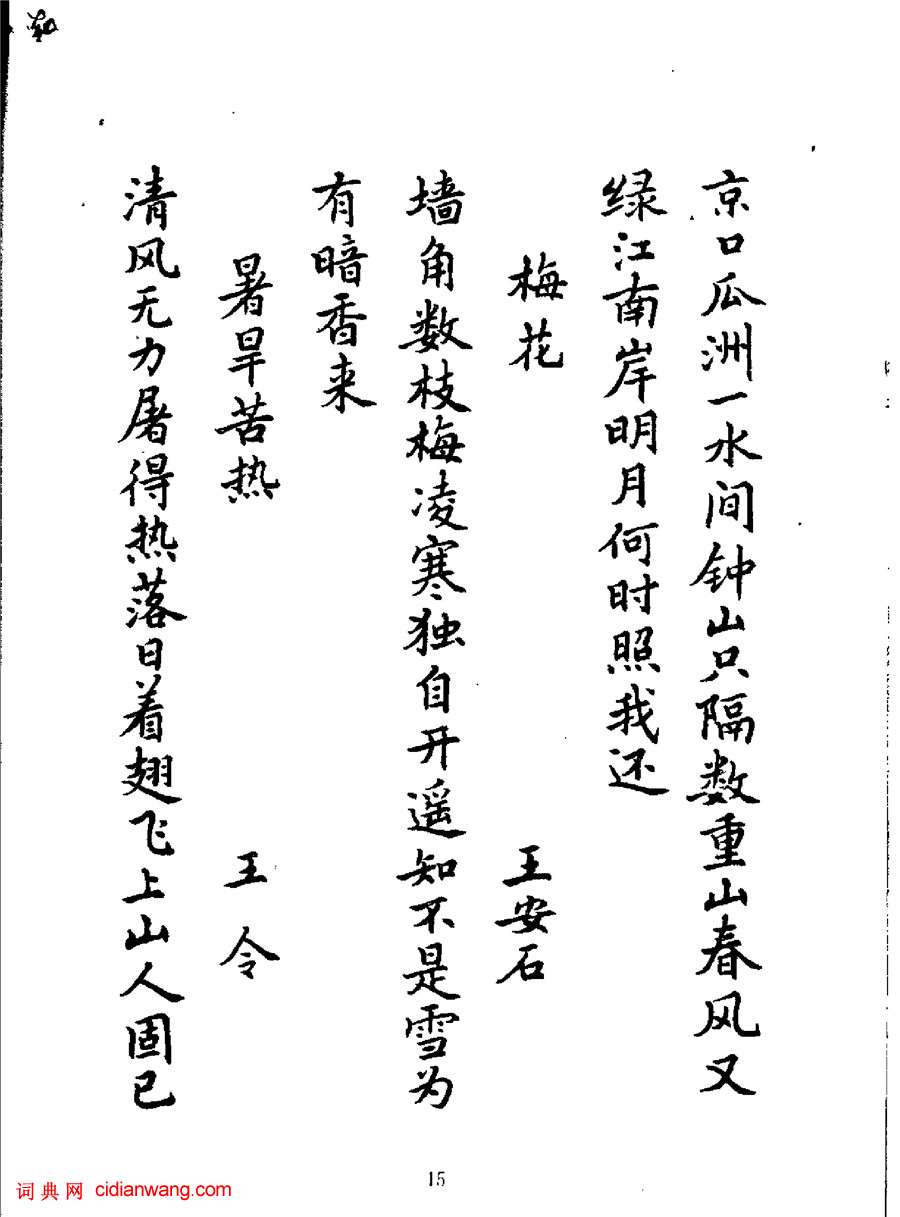 京口瓜洲一水间钟山只隔数重山春风又
绿江南岸明月何时照我还
梅花 王安石
墙角数枝梅凌寒独自开遥知不是雪为
有暗香来
暑旱苦热 王令
清风无力屠得热落日着翅飞上山人固已
15
词典网 cidianwang.com